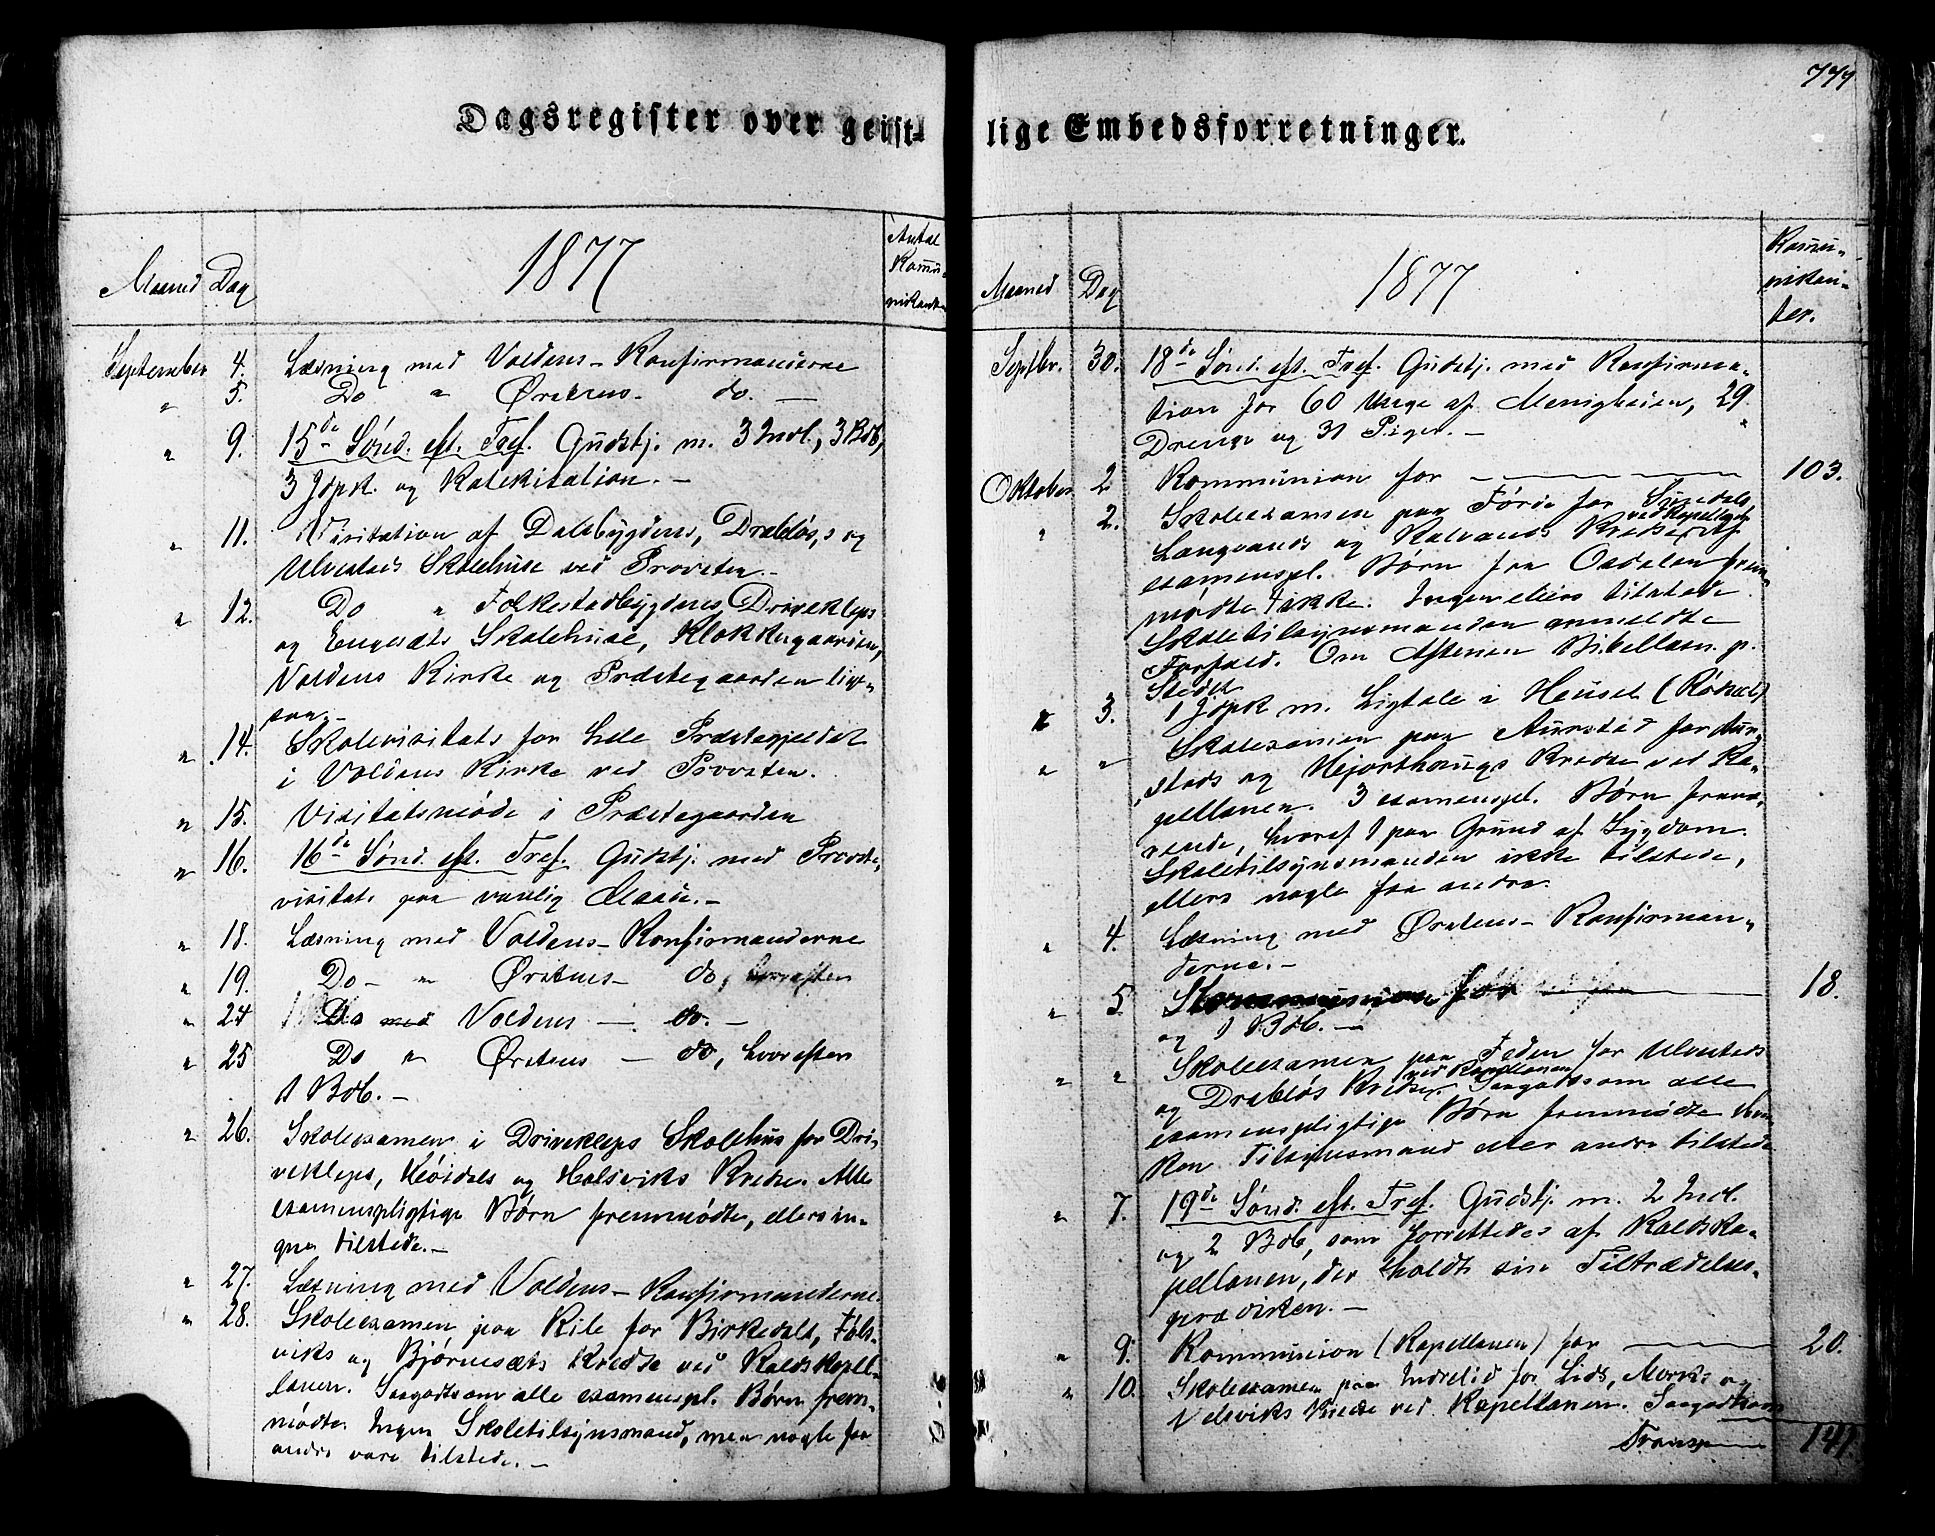 Dagsregister over geist-
Maaned Dag 1877 Antal
Kommu-
nikanter
September 4. Læsning med Voldens-Konfirmanderne
" 5. Do " Ørstens- do. —
" 9. 15de Sønd. eft. Tref. Gudstj. m. 3 Indl., 3 Bdb,
3 Jdpk. og Katekisation. —
" 11. Visitation af Dalsbygdens, Drabløs, og
Ulvestads Skolehuse ved Provsten. —
" 12. Do " Folkestadbygdens, Drivekleps
og Engesæts Skolehuse, Klokkergaarden,
Voldens Kirke og Præstegaarden lige-
saa. —
" 14. Skolevisitats for hele Præstegjeldet
i Voldens Kirke ved Provsten.
" 15. Visitatsmøde i Præstegaarden
" 16. 16de Sønd. eft. Tref. Gudstj. med Provste-
visitats paa vanlig Maade. —
" 18. Læsning med Voldens-Konfirmanderne
" 19. Do — " Ørstens — do, hvorefter
" 24 Do med Voldens — do. —
" 25 Do " Ørstens — do, hvorefter
1 Bdb. —
" 26. Skoleexamen i Drivekleps Skolehus for Dri-
vekleps, Høidals og Halsviks Kredse. Alle
examenspligtige Børn fremmødte, ellers in-
gen tilstede. —
" 27. Læsning med Voldens-Konfirmanderne.
" 28. Skoleexamen paa Kile for Birkedals, Føls-
viks og Bjørnesæts Kredse ved Kaldskapel-
lanen. Saagodtsom alle examenspl. Børn frem-
mødte. Ingen Skoletilsynsmand, men nogle faa
andre vare tilstede. —
lige Embedsforretninger.
Maaned Dag 1877 Kommu-
nikan-
ter.
Septbr. 30. 18de Sønd. eft. Tref. Gudstj. med Konfirma-
tion for 60 Unge af Menigheden, 29
Drenge og 31 Piger. —
Oktober 2 Kommunion for — 103.
" 2. Skoleexamen paa Førde for
Langvands og Kalvands Kredse ved Kapellanen. Af
examenspl. Børn fra Osdalen frem-
mødte ikke. Ingen ellers tilstede
Skoletilsynsmanden anmeldte
Forfald. Om Aftenen Bibellæsn. p.
Stedet
" 3. 1 Jdpk m. Ligtale i Huset (Rødsæt)
" " Skoleexamen paa Aurstad for Aur-
stads og Hjorthougs Kredse ved Ka-
pellanen. 3 examenspl. Børn fravæ-
rende, hvoraf 1 paa Grund af Sygdom.
Skoletilsynsmanden ikke tilstede,
ellers nogle faa andre.
" 4. Læsning med Ørstens-Konfirman-
derne. —
" 5. Kommunion for — 18.
og 1 Bdb. —
" " Skoleexamen paa Feden for Ulvestads
og Drabløs Kredse ved Kapellanen. Saagodtsom alle
examenspligtige Børn fremmødte. Hver-
ken Tilsynsmand eller andre tilstede
" 7. 19de Sønd. eft. Tref. Gudstj. m. 2 Indl.
og 2 Bdb, som forrettedes af Kaldska-
pellanen, der holdt sin Tiltrædelses-
prædiken. —
" 9. Kommunion (Kapellanen) for — 20.
" 10. Skoleexamen paa Indrelid for Lids, Morks og
Velsviks Kredse ved Kapellanen. Saagodtsom
Transp — 141.